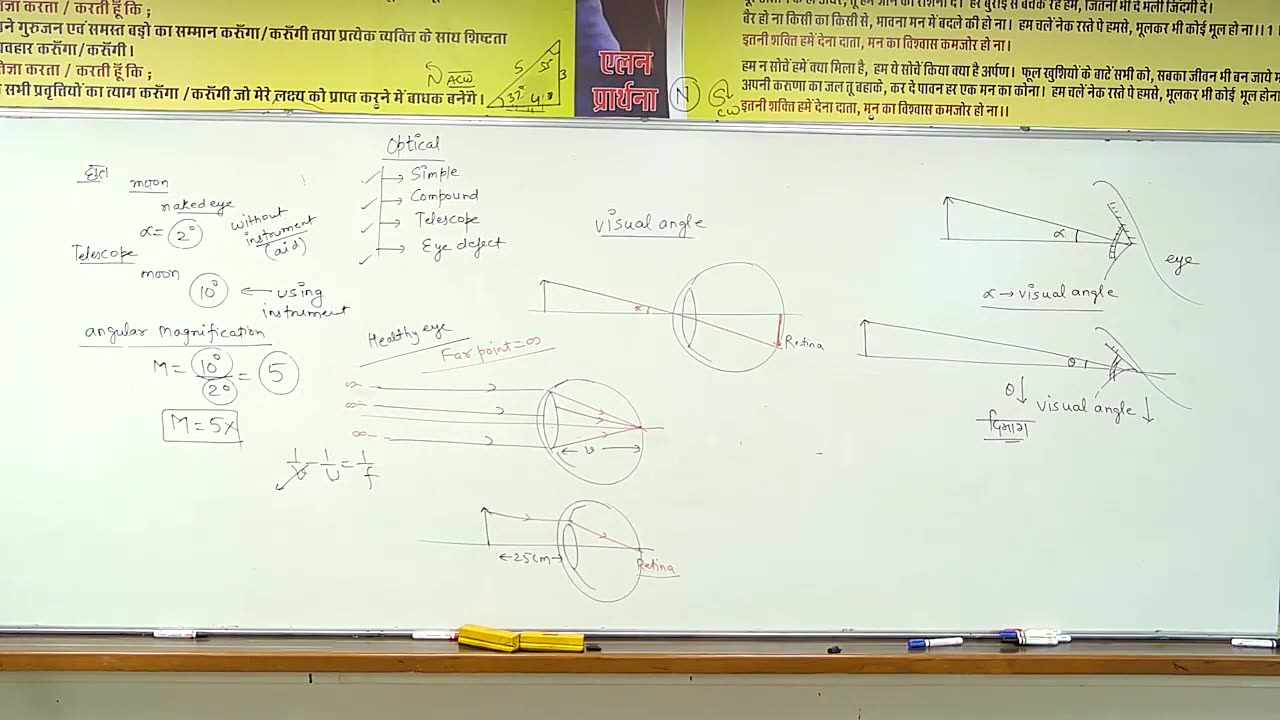 करता / करती हूँ कि ;
गुरुजन एवं समस्त बड़ो का सम्मान करूँगा / करूँगी तथा प्रत्येक व्यक्ति के साथ शिष्टता
करूँगा / करूँगी।
करता / करती हूँ कि ;
सभी प्रवृत्तियों का त्याग करूँगा / करूँगी जो मेरे लक्ष्य को प्राप्त करने में बाधक बनेंगे।
N ACW
5 53° 3
37° 4
एलन
प्रार्थना
N
CW
वैर हो ना किसी का किसी से, भावना मन में बदले की हो ना। हम चलें नेक रस्ते पे हमसे, भूलकर भी कोई भूल हो ना।। 1
इतनी शक्ति हमें देना दाता, मन का विश्वास कमजोर हो ना।
हम न सोचें हमें क्या मिला है, हम ये सोचें किया क्या है अर्पण। फूल खुशियों के बाटें सभी को, सबका जीवन भी बन जाये
अपनी करुणा का जल तू बहाके, कर दे पावन हर एक मन का कोना। हम चलें नेक रस्ते पे हमसे, भूलकर भी कोई भूल होना
इतनी शक्ति हमें देना दाता, मन का विश्वास कमजोर हो ना।।
moon
naked eye
α = 2°
without
instrument
(aid)
Telescope
moon
10° ← using
instrument
angular Magnification
M = 10°/2° = 5
M = 5X
1/v - 1/u = 1/f
Optical
→ Simple
→ Compound
→ Telescope
→ Eye defect
visual angle
α
Retina
Healthy eye
Far point = ∞
∞
∞
∞
v
←25cm→
Retina
α
eye
α → visual angle
θ
θ↓ visual angle ↓
दिमाग